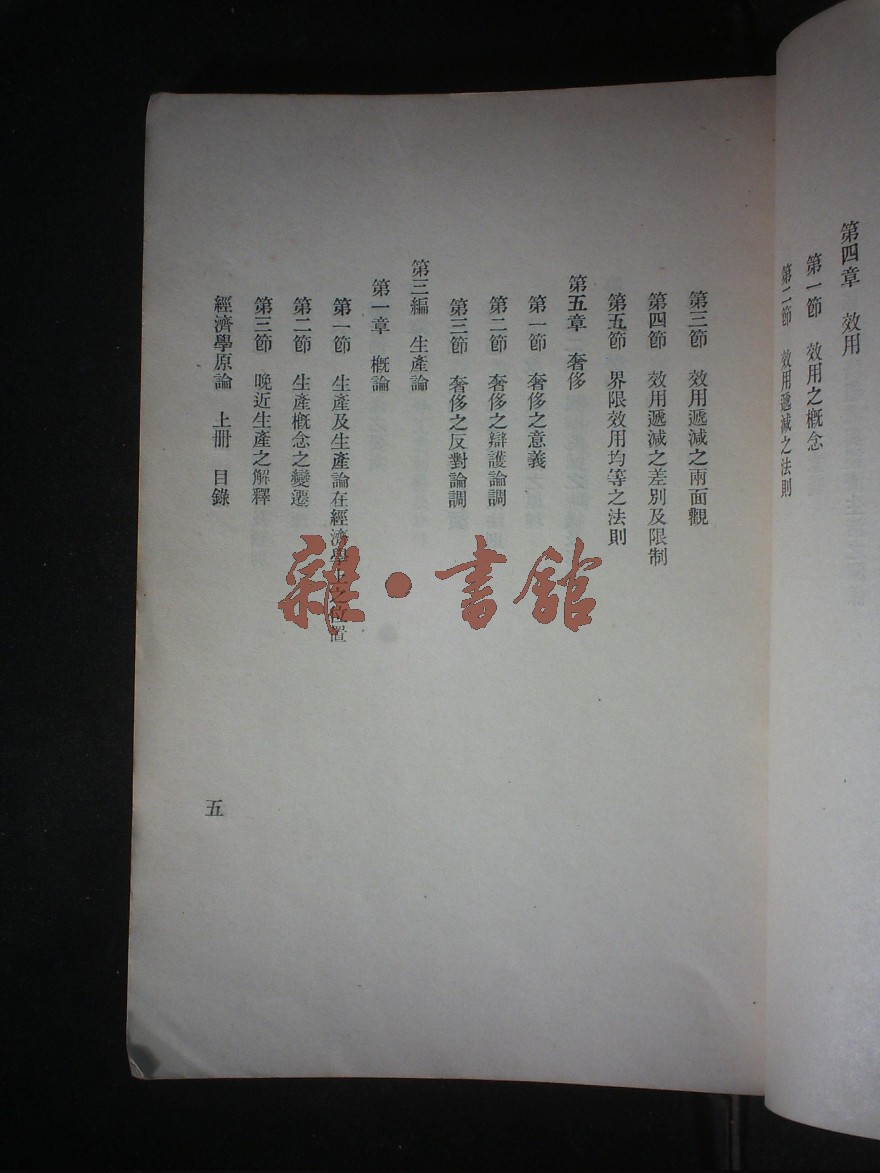 第四章　效用
第一節　效用之概念
第二節　效用遞減之法則
第三節　效用遞減之兩面觀
第四節　效用遞減之差別及限制
第五節　界限效用均等之法則
第五章　奢侈
第一節　奢侈之意義
第二節　奢侈之辯護論調
第三節　奢侈之反對論調
第三編　生產論
第一章　概論
第一節　生產及生產論在經濟學上之位置
第二節　生產概念之變遷
第三節　晚近生產之解釋
經濟學原論　上冊　目錄
五
雜·書館